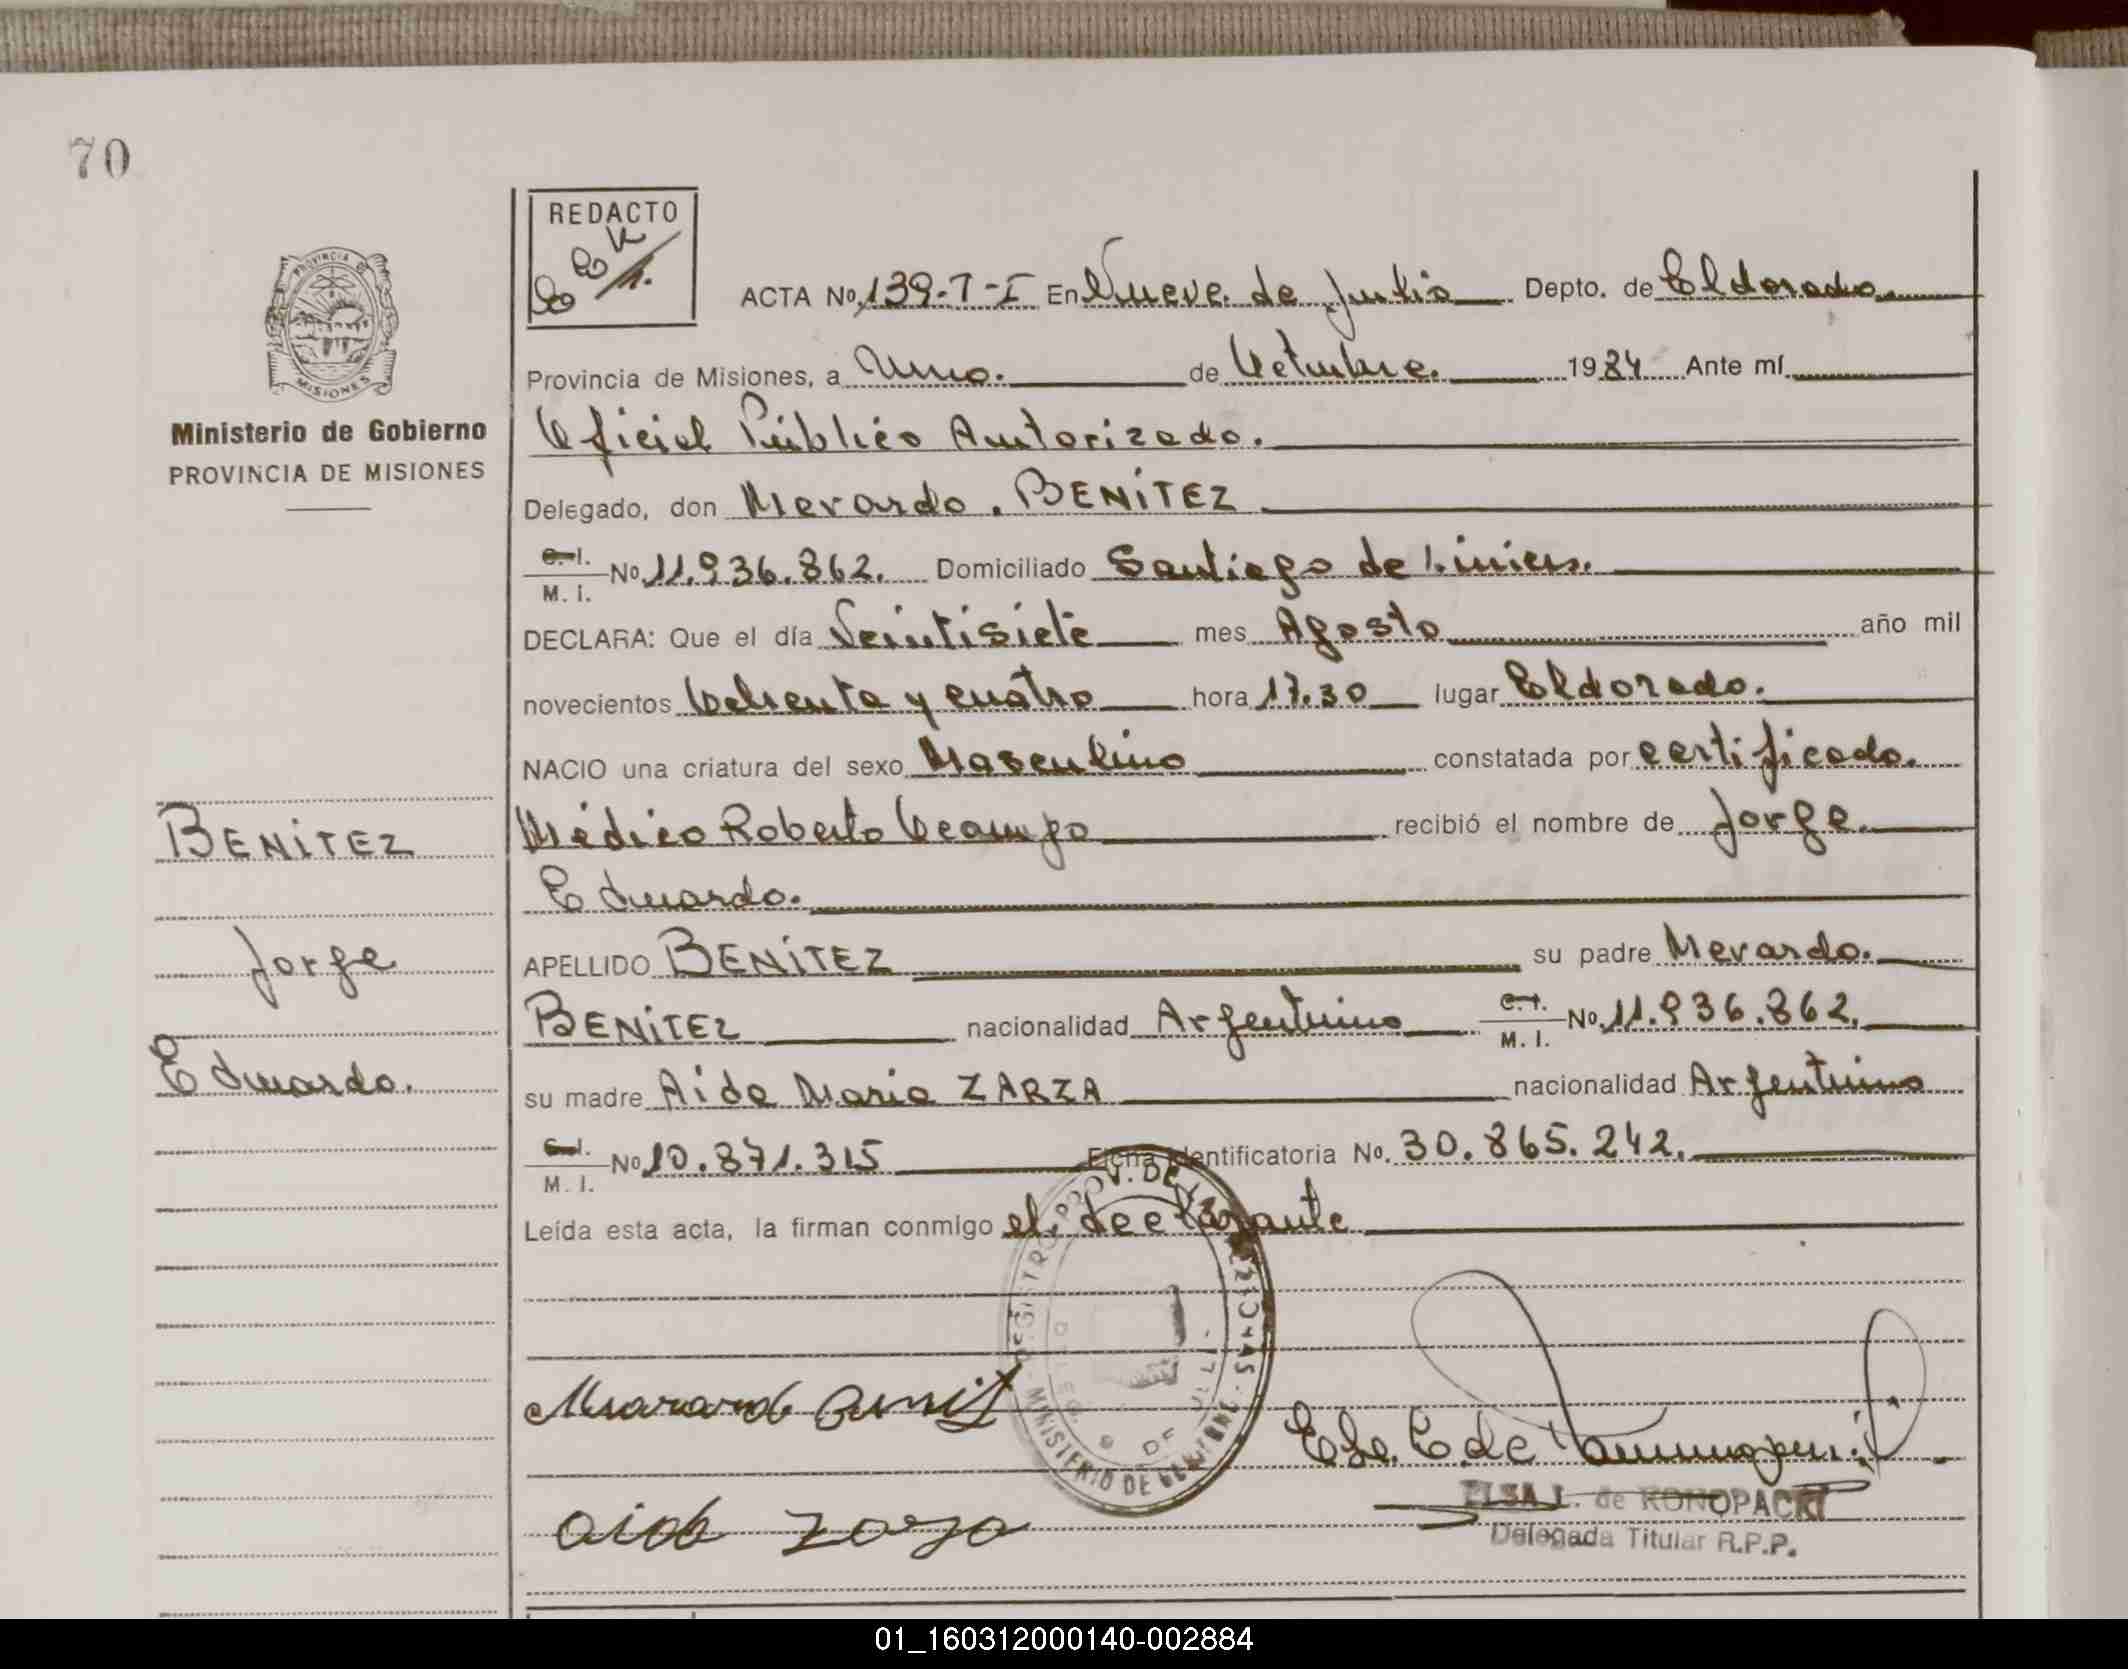 70
REDACTO
ACTA No. 139-T-I En Nueve de Julio Depto. de Eldorado.
PROVINCIA DE
MISIONES
Provincia de Misiones, a Uno. de Octubre. 1984 Ante mí
Ministerio de Gobierno
PROVINCIA DE MISIONES
Oficial Público Autorizado.
Delegado, don Merardo. BENÍTEZ
C.I. M. I. No 11.936.862. Domiciliado Santiago de Liniers.
DECLARA: Que el día Veintisiete mes Agosto año mil
novecientos Ochenta y cuatro hora 17.30 lugar Eldorado.
NACIO una criatura del sexo Masculino constatada por certificado.
BENÍTEZ
Médico Roberto Ocampo recibió el nombre de Jorge
Eduardo.
Jorge
APELLIDO BENÍTEZ su padre Merardo.
BENÍTEZ nacionalidad Argentino C.I. M. I. No. 11.936.862.
Eduardo.
su madre Aida Maria ZARZA nacionalidad Argentina
C.I. M. I. No 10.871.315 Ficha Identificatoria No. 30.865.242.
Leída esta acta, la firman conmigo el declarante
REGISTRO PROV. DE LAS PERSONAS - MINISTERIO DE GOBIERNO
DELEG. 9 DE JULIO
ELSA L. de KONOPACKI
Delegada Titular R.P.P.
aida zarza
01_160312000140-002884